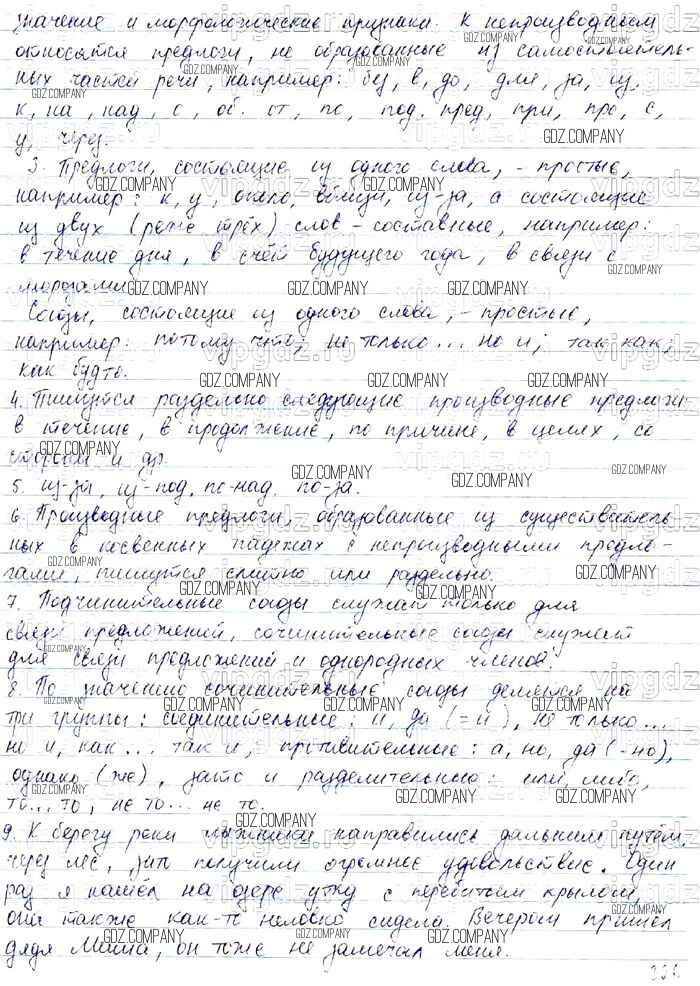 значение и морфологические признаки. К непроизводным
относятся предлоги, не образованные из самостоятель-
ных частей речи, например: без, в, до, для, за, из,
к, на, над, о, об, от, по, под, пред, при, про, с,
у, через.
3. Предлоги, состоящие из одного слова, - простые,
например: к, у, около, вблизи, из-за, а состоящие
из двух (реже трёх) слов - составные, например:
в течение дня, в счёт будущего года, в связи с
морозами.
Союзы, состоящие из одного слова, - простые,
например: потому что; не только... но и; так как;
как будто.
4. Пишутся раздельно следующие производные предлоги:
в течение, в продолжение, по причине, в целях, со
стороны и др.
5. из-за, из-под, по-над, по-за.
6. Производные предлоги, образованные из существитель-
ных в косвенных падежах с непроизводными предло-
гами, пишутся слитно или раздельно.
7. Подчинительные союзы служат только для
связи предложений, сочинительные союзы служат
для связи предложений и однородных членов.
8. По значению сочинительные союзы делятся на
три группы: соединительные: и, да (=и), не только...
но и, как... так и, противительные: а, но, да (=но),
однако (же), зато и разделительные: или, либо,
то... то, не то... не то.
9. К берегу реки лыжники направились дальним путём,
через лес, зато получили огромное удовольствие. Один
раз я нашёл на озере утку с перебитым крылом,
она также как-то неловко сидела. Вечером пришёл
дядя Миша, он тоже не замечал меня.
GDZ.COMPANY
vipgdz.ru